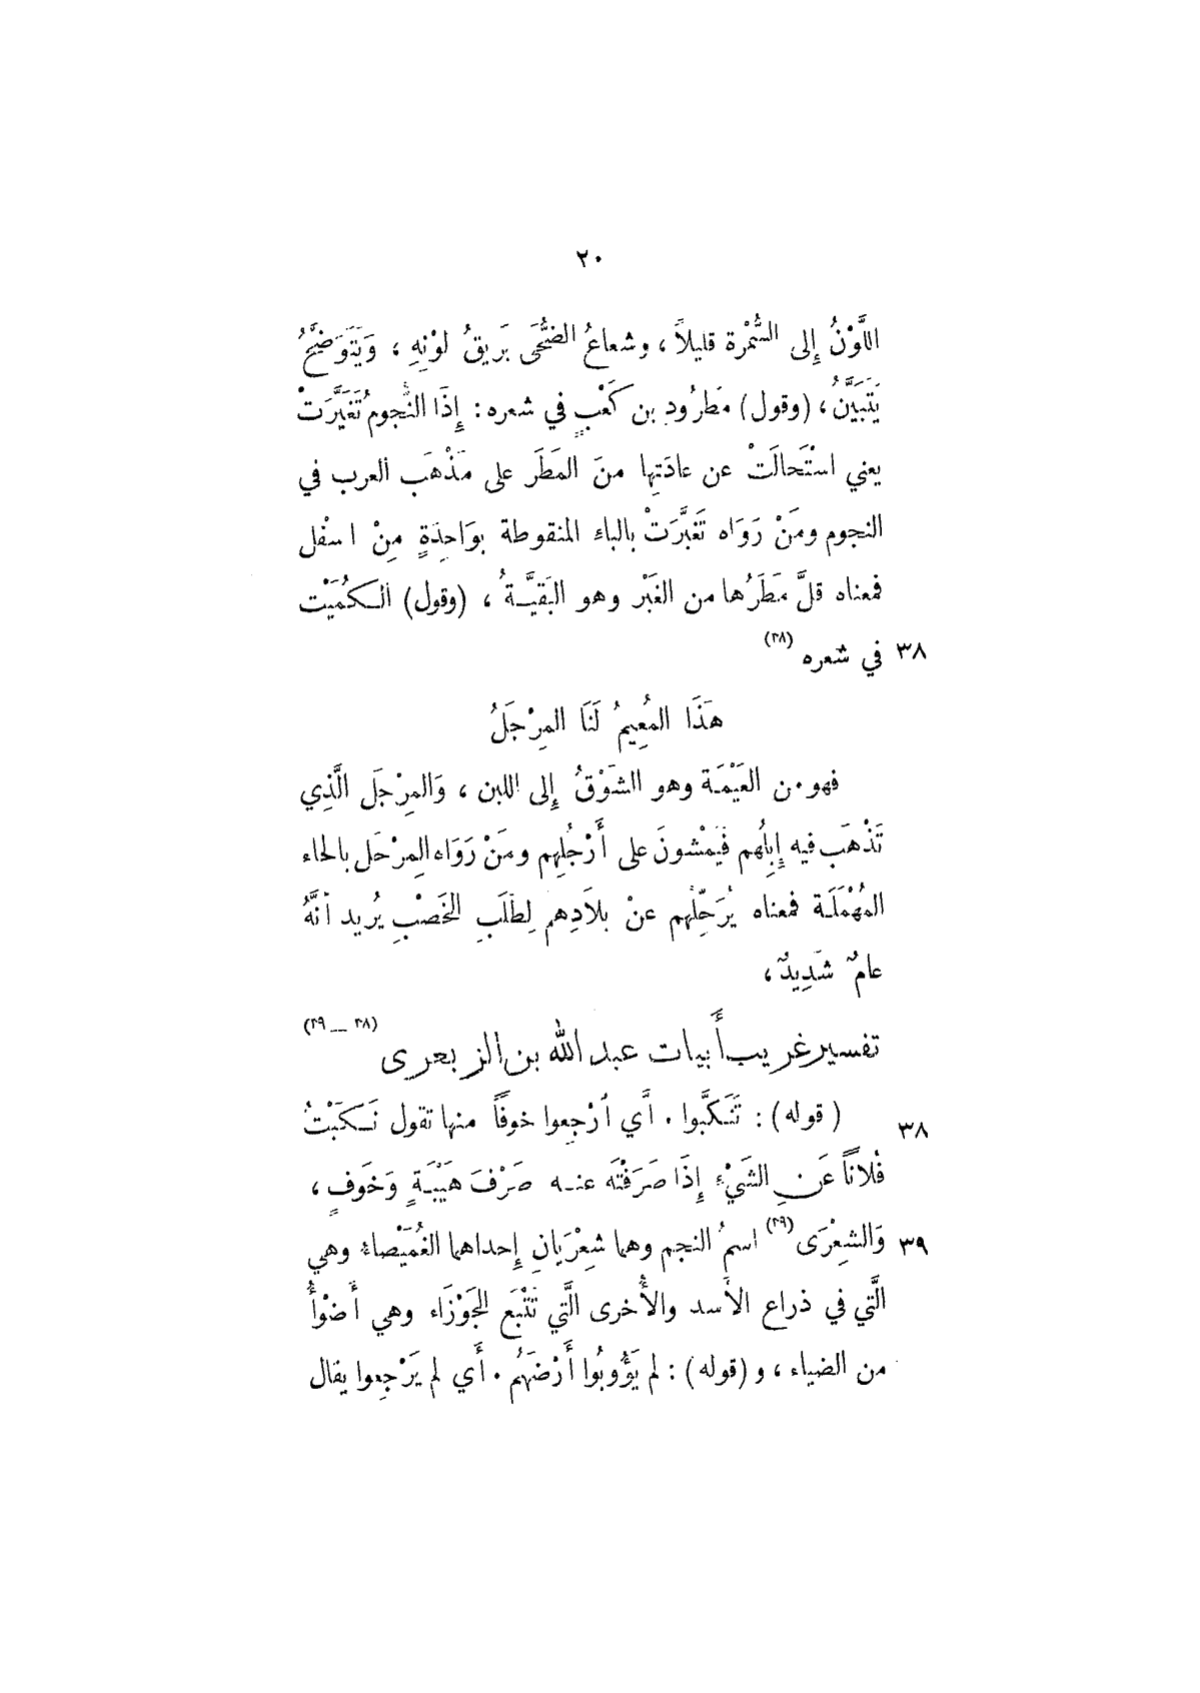 ٢٠
اللَّوْنُ إِلى السُّمْرة قليلاً ، وشعاعُ الضُّحَى بَريقُ لوْنِهِ ، وَيَتَوَضَّحُ
يَتَبَيَّنُ ، (وقول) مَطرُود بن كَعْبٍ في شعره : إِذَا النُّجومُ تَغَيَّرَتْ
يعني اسْتَحالَتْ عن عادَتِها منَ المَطَر على مَذْهَب العرب في
النجوم ومَنْ رَوَاه تَغَبَّرَتْ بالباء المنقوطة بوَاحِدَةٍ مِنْ اسْفل
فمعناه قلَّ مَطَرُها من الغَبْر وهو البَقيَّـةُ ، (وقول) الـكُمَيْت
٣٨ في شعره (٣٨)
هَذَا المُعِيمُ لَنَا المِرْجَلُ
فهو من العَيْمَة وهو الشَوْقُ إِلى اللبن ، وَالمِرْجَل الَّذِي
تَذْهَب فيه إِبِلُهم فَيَمْشونَ على أَرْجُلِهِم ومَنْ رَوَاه المِرْحَل بالحاء
المُهْمَلَـة فمعناه يُرَحِّلُهم عنْ بلاَدِهم لِطَلَبِ الخَصْبِ يُريد أنَّهُ
عامٌ شَدِيدٌ ،
تفسير غريب أَبيات عبد الله بن الزبعرى (٣٨ — ٣٩)
٣٨ ( قوله ) : تَنَـكَّبوا . أَي اُرْجِعوا خوفًا منها تقول نَـكَبْتُ
فُلاناً عَنِ الشَيْءِ إِذَا صَرَفْتَه عنـه صَرْفَ هَيْبَـةٍ وَخَوفٍ ،
٣٩ وَالشِعْرَى (٣٩) اسمُ النجم وهما شِعْرَيَانِ إِحداهما الغُمَيْصاءُ وهي
الَّتي في ذراع الأَسد والأُخرى الَّتي تَتْبَع الجَوْزَاء وهي أَضوَأُ
من الضياء ، و (قوله) : لم يَؤُوبُوا أَرْضَهُم . أَي لم يَرْجِعوا يقال